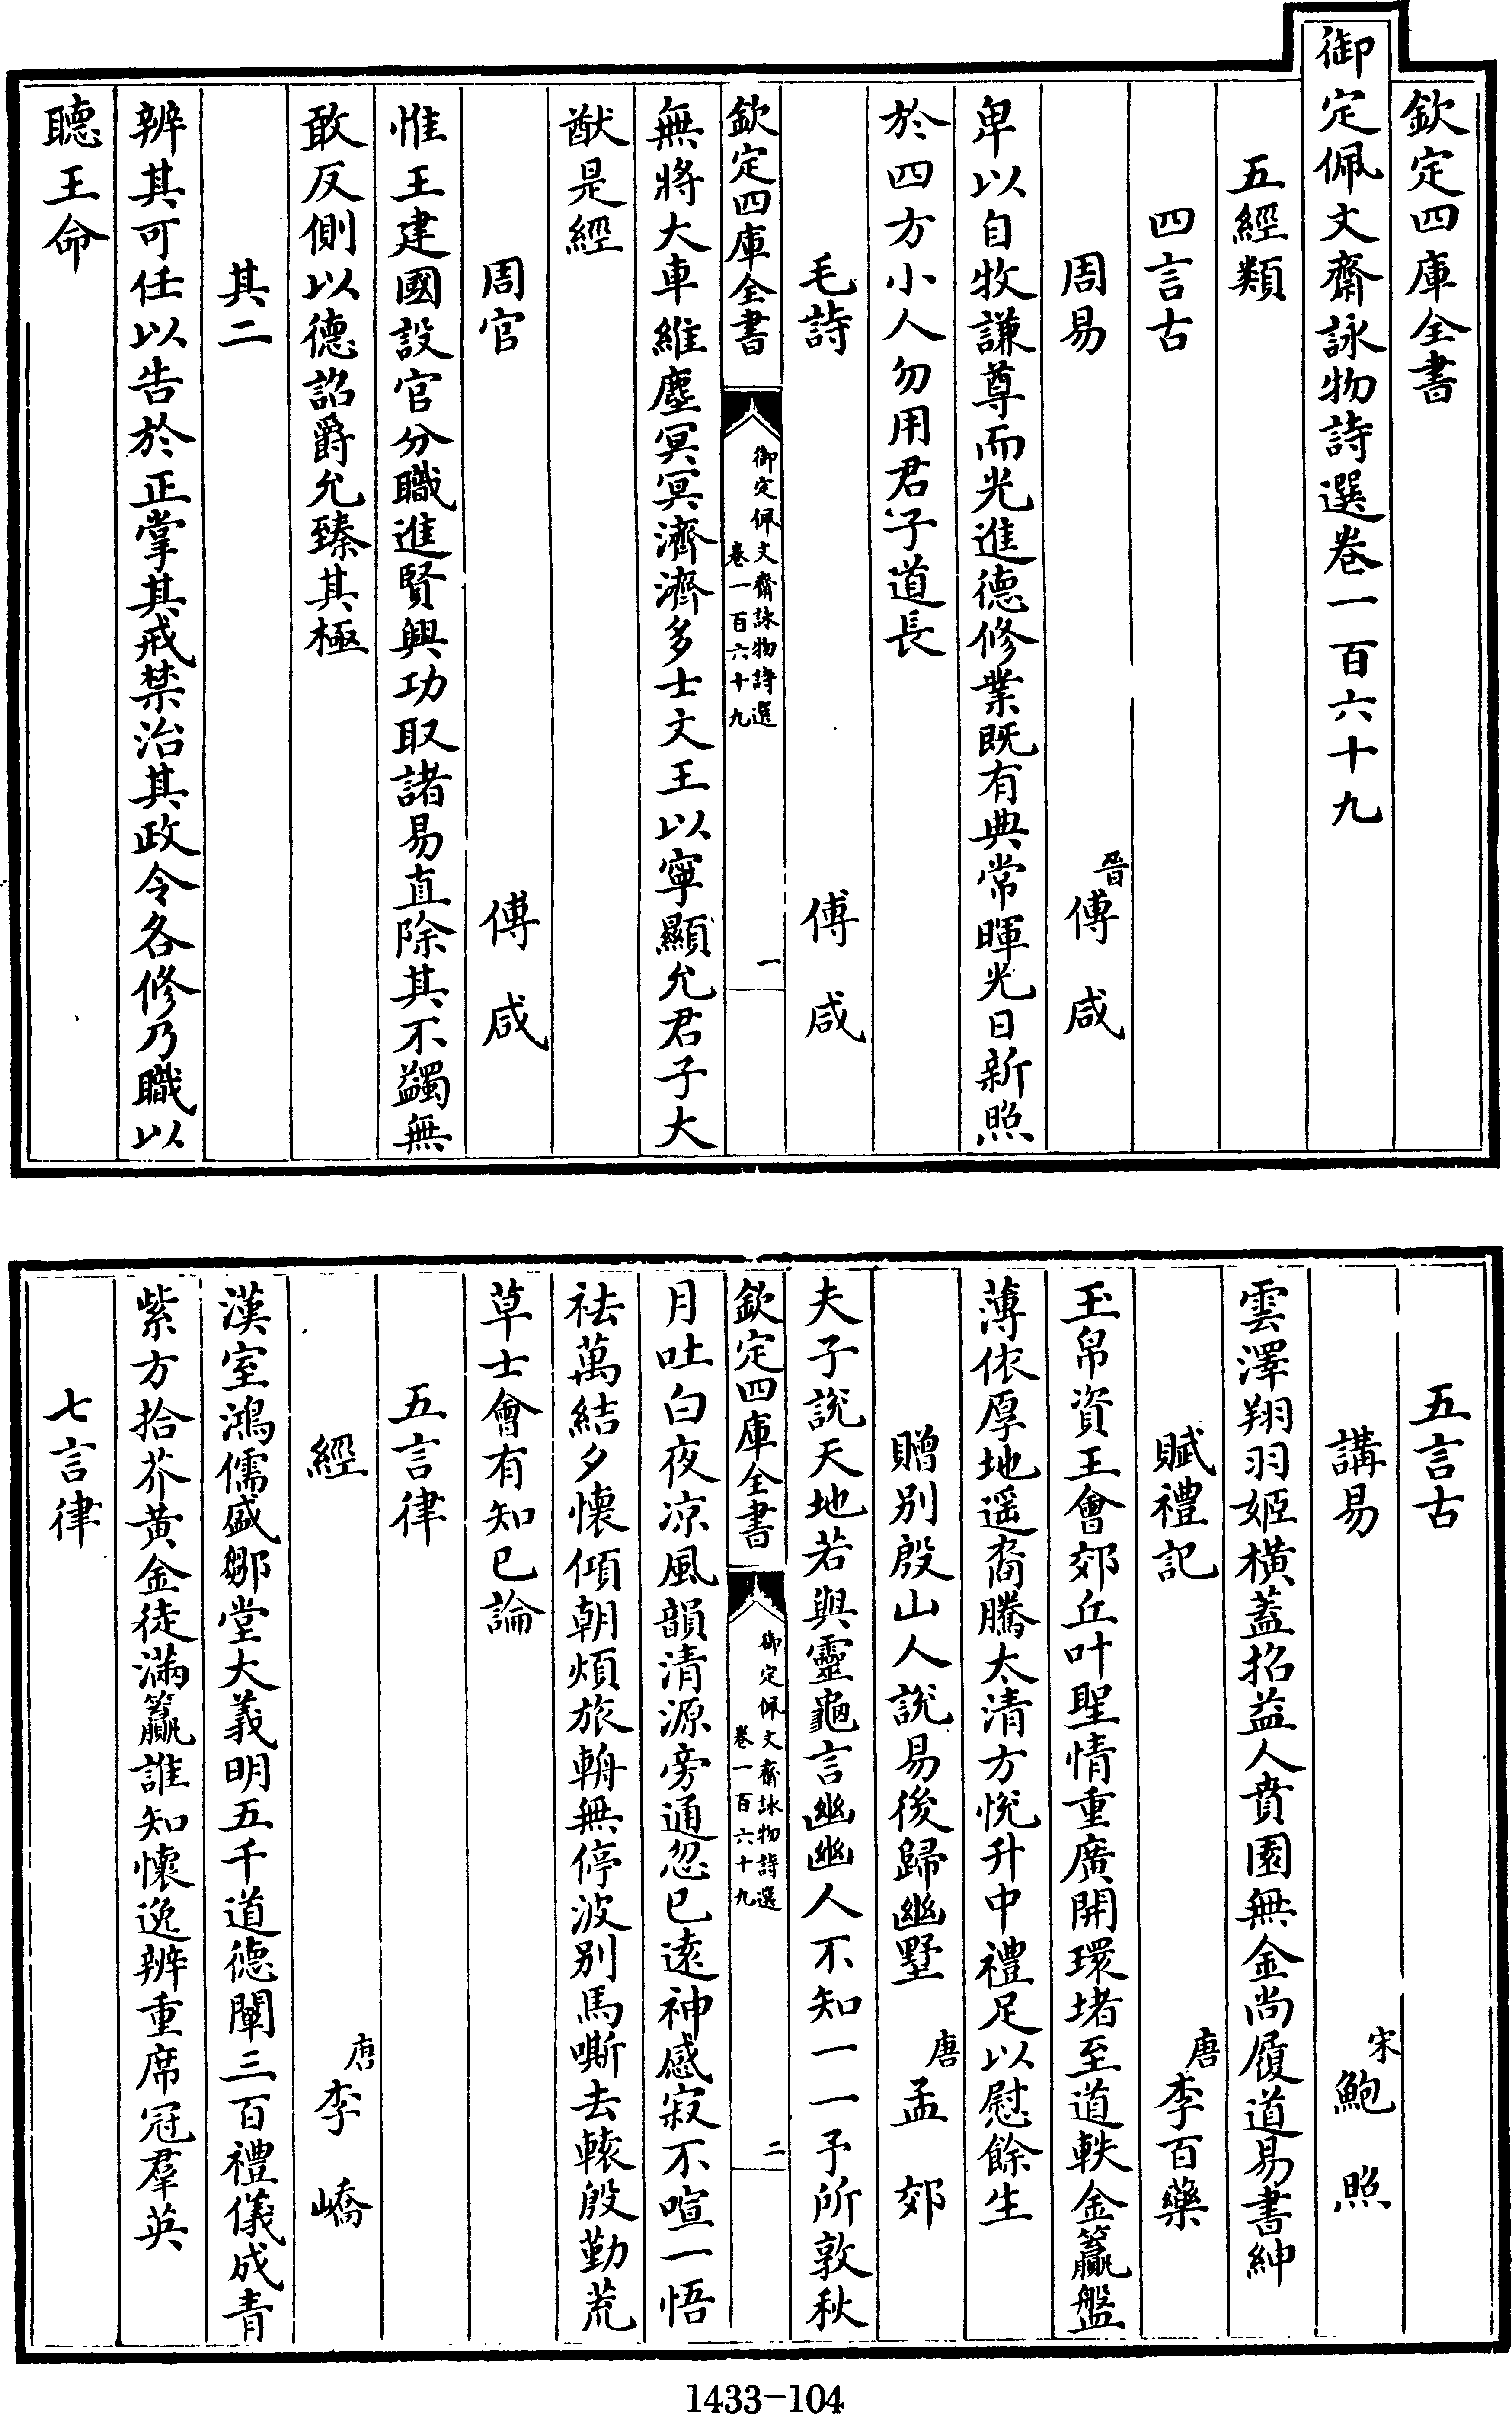 欽定四庫全書
御定佩文齋詠物詩選卷一百六十九
五經類
四言古
周易 晉傅咸
卑以自牧謙尊而光進德修業既有典常暉光日新照
於四方小人勿用君子道長
毛詩 傅咸
欽定四庫全書 御定佩文齋詠物詩選 卷一百六十九 一
無將大車維塵冥冥濟濟多士文王以寧顯允君子大
猷是經
周官 傅咸
惟王建國設官分職進賢興功取諸易直除其不蠲無
敢反側以德詔爵允臻其極
其二
辨其可任以告於正掌其戒禁治其政令各修乃職以
聽王命
五言古
講易 宋鮑照
雲澤翔羽姬橫蓋招益人賁園無金尚履道易書紳
賦禮記 唐李百藥
玉帛資王會郊丘叶聖情重廣開環堵至道軼金籯盤
薄依厚地遥裔騰太清方悅升中禮足以慰餘生
贈别殷山人說易後歸幽墅 唐孟郊
夫子說天地若與靈龜言幽幽人不知一一予所敦秋
欽定四庫全書 御定佩文齋詠物詩選 卷一百六十九 二
月吐白夜凉風韻清源旁通忽已遠神感寂不喧一悟
袪萬結夕懷傾朝煩旅輈無停波别馬嘶去轅殷勤荒
草士會有知已論
五言律
經 唐李嶠
漢室鴻儒盛鄒堂大義明五千道德闡三百禮儀成青
紫方拾芥黄金徒滿籯誰知懷逸辨重席冠羣英
七言律
1433-104